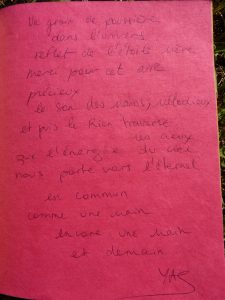 de grain de poussière
dans l'univers
reflet de l'étoile mère
merci pour cet
précieux
le son des mélodieux
et puis le lien traverse
les cieux
que l'énergie du
nous porte vers l'éternel
en commun
comme une main
envers une main
et demain